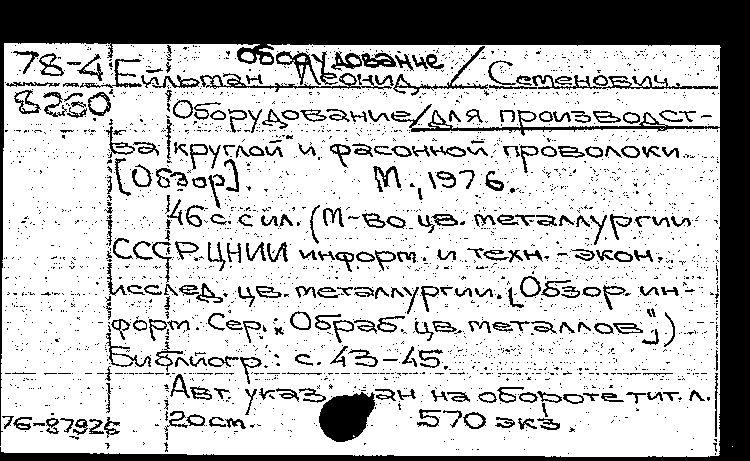 Оборудование /
78-4 Ейльман, Леонид Семенович.
8260 Оборудование/для производст-
ва круглой и фасонной проволоки.
[Обзор]. М., 1976.
46 с. с ил. (М-во цв. металлургии
СССР. ЦНИИ информ. и техн.-экон.
исслед. цв. металлургии. [Обзор. ин-
форм. Сер.: "Обраб. цв. металлов"])
Библиогр.: с. 43-45.
Авт. указ. на обороте тит. л.
76-87926 20 cm. 570 экз.